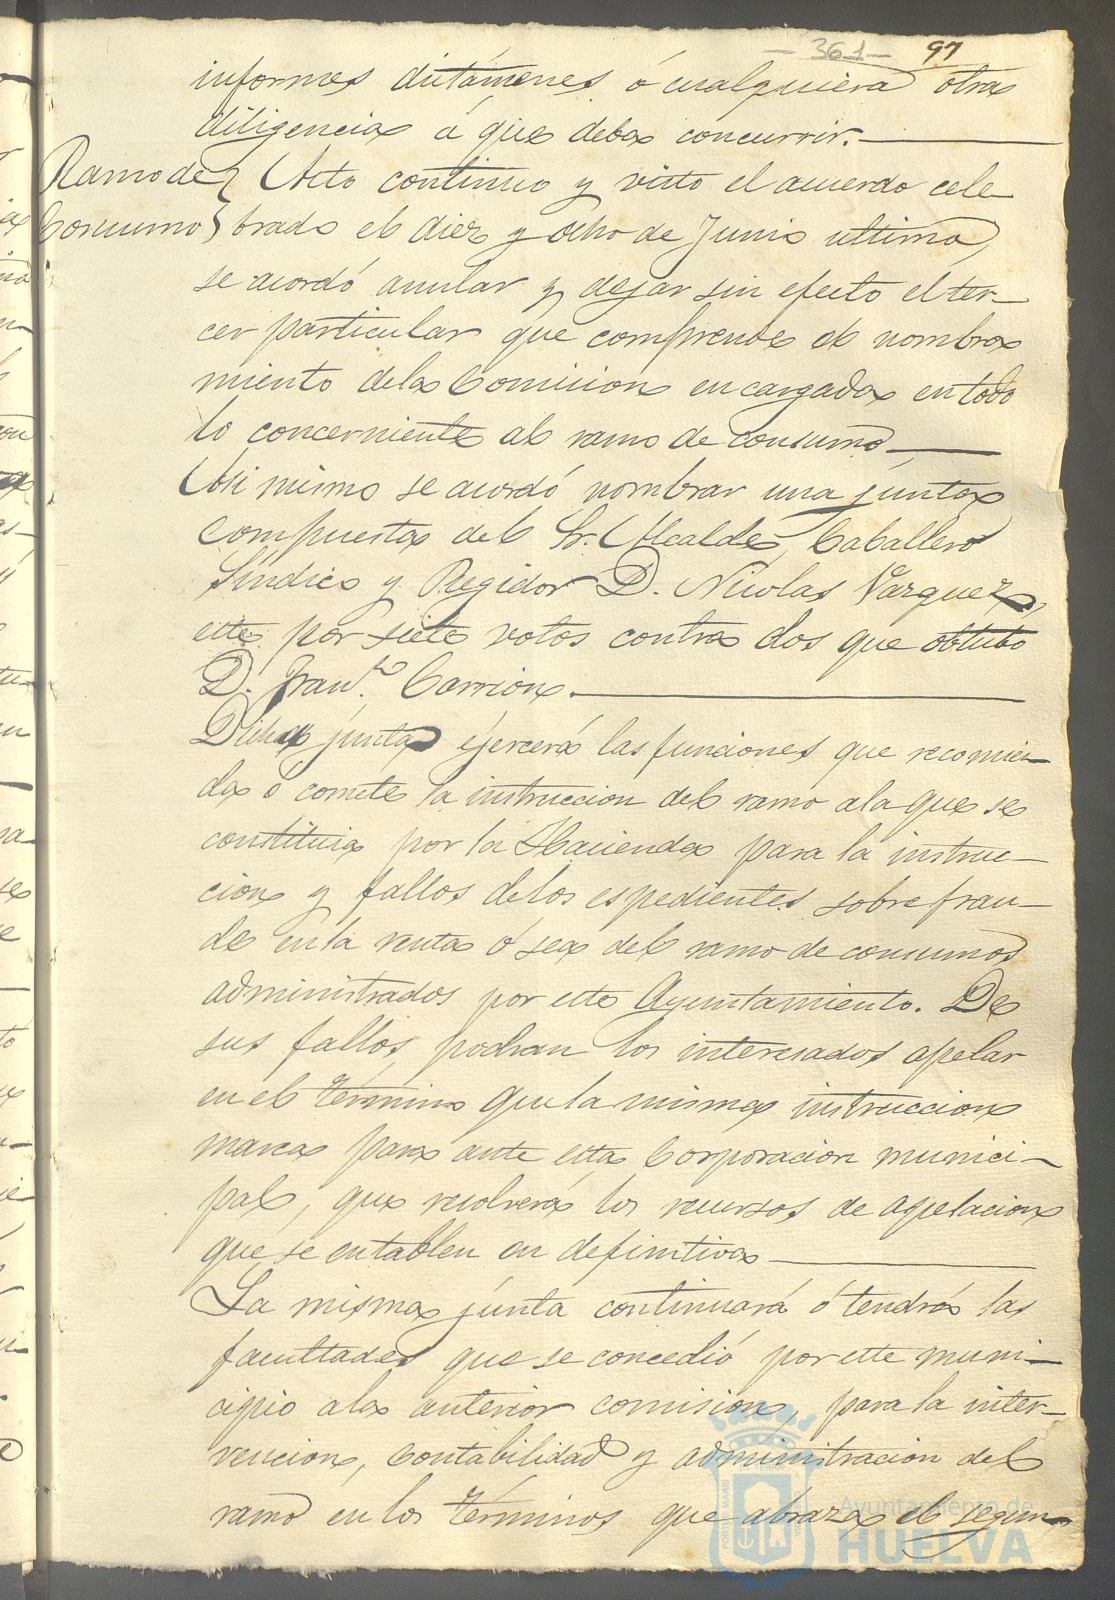 — 361 — 97
informes dictámenes ó cualquiera otra
diligencia á que deba concurrir.
Ramo de
Consumo
Acto continuo y visto el acuerdo cele
brado el diez y ocho de Junio ultimo,
se acordó anular y dejar sin efecto el ter-
cer particular que comprende el nombra
miento de la Comision encargada en todo
lo concerniente al ramo de consumo
Asi mismo se acordó nombrar una junta
compuesta del Sr. Alcalde, Caballero
Síndico y Regidor D. Nicolas Vazquez,
este por siete votos contra dos que obtubo
D. Fran.co Carrion.
Dicha junta ejercerá las funciones que recomien-
da ó comete la instruccion del ramo a la que se
constituia por la Hacienda para la instruc-
cion y fallos de los espedientes sobre frau-
de en la renta ó sea del ramo de consumos
administrados por este Ayuntamiento. De
sus fallos, podran los interesados apelar
en el término que la misma instruccion
marca para ante esta Corporacion munici-
pal, que resolverá los recursos de apelacion
que se entablen en definitiva
La misma junta continuará ó tendrá las
facultades que se concedió por este muni-
cipio a la anterior comision, para la inter-
vencion, contabilidad y administracion del
ramo en los términos que abraza el segun-
Ayuntamiento de
HUELVA